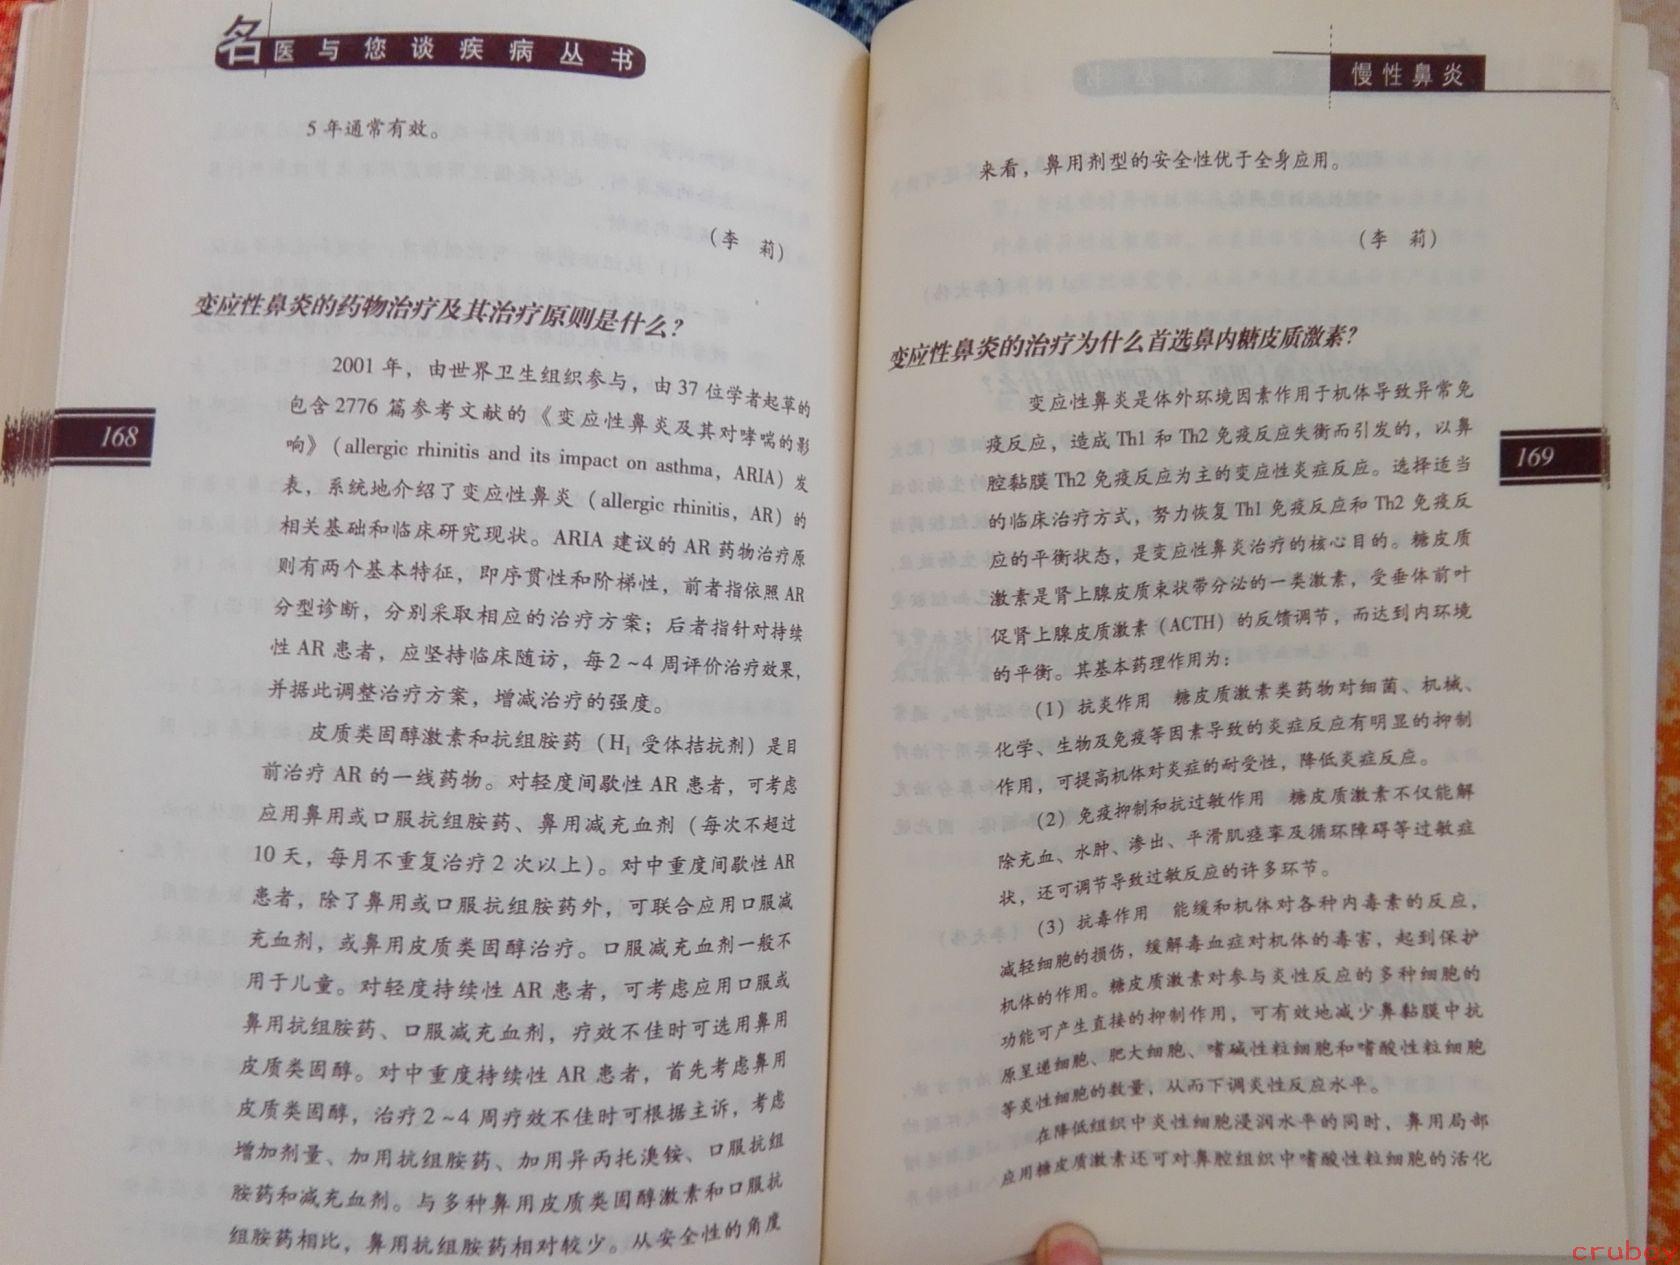 名医与您谈疾病丛书
5 年通常有效。
（李　莉）
变应性鼻炎的药物治疗及其治疗原则是什么？
2001 年，由世界卫生组织参与，由 37 位学者起草的
包含 2776 篇参考文献的《变应性鼻炎及其对哮喘的影
响》（allergic rhinitis and its impact on asthma，ARIA）发
表，系统地介绍了变应性鼻炎（allergic rhinitis，AR）的
相关基础和临床研究现状。ARIA 建议的 AR 药物治疗原
则有两个基本特征，即序贯性和阶梯性，前者指依照 AR
分型诊断，分别采取相应的治疗方案；后者指针对持续
性 AR 患者，应坚持临床随访，每 2～4 周评价治疗效果，
并据此调整治疗方案，增减治疗的强度。
皮质类固醇激素和抗组胺药（H₁ 受体拮抗剂）是目
前治疗 AR 的一线药物。对轻度间歇性 AR 患者，可考虑
应用鼻用或口服抗组胺药、鼻用减充血剂（每次不超过
10 天，每月不重复治疗 2 次以上）。对中重度间歇性 AR
患者，除了鼻用或口服抗组胺药外，可联合应用口服减
充血剂，或鼻用皮质类固醇治疗。口服减充血剂一般不
用于儿童。对轻度持续性 AR 患者，可考虑应用口服或
鼻用抗组胺药、口服减充血剂，疗效不佳时可选用鼻用
皮质类固醇。对中重度持续性 AR 患者，首先考虑鼻用
皮质类固醇，治疗 2～4 周疗效不佳时可根据主诉，考虑
增加剂量、加用抗组胺药、加用异丙托溴铵、口服抗组
胺药和减充血剂。与多种鼻用皮质类固醇激素和口服抗
组胺药相比，鼻用抗组胺药相对较少。从安全性的角度
168
慢性鼻炎
来看，鼻用剂型的安全性优于全身应用。
（李　莉）
变应性鼻炎的治疗为什么首选鼻内糖皮质激素？
变应性鼻炎是体外环境因素作用于机体导致异常免
疫反应，造成 Th1 和 Th2 免疫反应失衡而引发的，以鼻
腔黏膜 Th2 免疫反应为主的变应性炎症反应。选择适当
的临床治疗方式，努力恢复 Th1 免疫反应和 Th2 免疫反
应的平衡状态，是变应性鼻炎治疗的核心目的。糖皮质
激素是肾上腺皮质束状带分泌的一类激素，受垂体前叶
促肾上腺皮质激素（ACTH）的反馈调节，而达到内环境
的平衡。其基本药理作用为：
（1）抗炎作用　糖皮质激素类药物对细菌、机械、
化学、生物及免疫等因素导致的炎症反应有明显的抑制
作用，可提高机体对炎症的耐受性，降低炎症反应。
（2）免疫抑制和抗过敏作用　糖皮质激素不仅能解
除充血、水肿、渗出、平滑肌痉挛及循环障碍等过敏症
状，还可调节导致过敏反应的许多环节。
（3）抗毒作用　能缓和机体对各种内毒素的反应，
减轻细胞的损伤，缓解毒血症对机体的毒害，起到保护
机体的作用。糖皮质激素对参与炎性反应的多种细胞的
功能可产生直接的抑制作用，可有效地减少鼻黏膜中抗
原呈递细胞、肥大细胞、嗜碱性粒细胞和嗜酸性粒细胞
等炎性细胞的数量，从而下调炎性反应水平。
在降低组织中炎性细胞浸润水平的同时，鼻用局部
应用糖皮质激素还可对鼻腔组织中嗜酸性粒细胞的活化
169